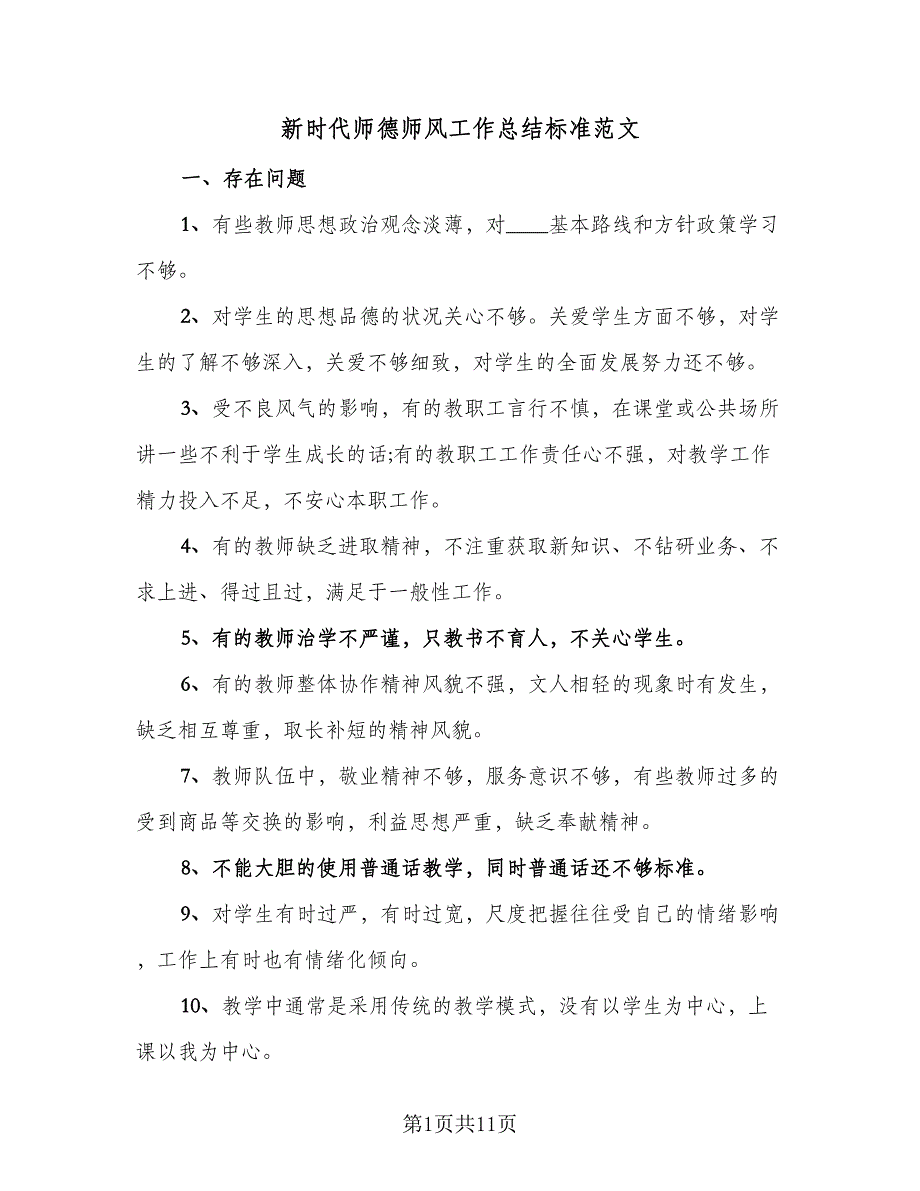 新时代师德师风工作总结标准范文
一、存在问题
1、有些教师思想政治观念淡薄，对____基本路线和方针政策学习
不够。
2、对学生的思想品德的状况关心不够。关爱学生方面不够，对学
生的了解不够深入，关爱不够细致，对学生的全面发展努力还不够。
3、受不良风气的影响，有的教职工言行不慎，在课堂或公共场所
讲一些不利于学生成长的话;有的教职工工作责任心不强，对教学工作
精力投入不足，不安心本职工作。
4、有的教师缺乏进取精神，不注重获取新知识、不钻研业务、不
求上进、得过且过，满足于一般性工作。
5、有的教师治学不严谨，只教书不育人，不关心学生。
6、有的教师整体协作精神风貌不强，文人相轻的现象时有发生，
缺乏相互尊重，取长补短的精神风貌。
7、教师队伍中，敬业精神不够，服务意识不够，有些教师过多的
受到商品等交换的影响，利益思想严重，缺乏奉献精神。
8、不能大胆的使用普通话教学，同时普通话还不够标准。
9、对学生有时过严，有时过宽，尺度把握往往受自己的情绪影响
，工作上有时也有情绪化倾向。
10、教学中通常是采用传统的教学模式，没有以学生为中心，上
课以我为中心。
第1页共11页